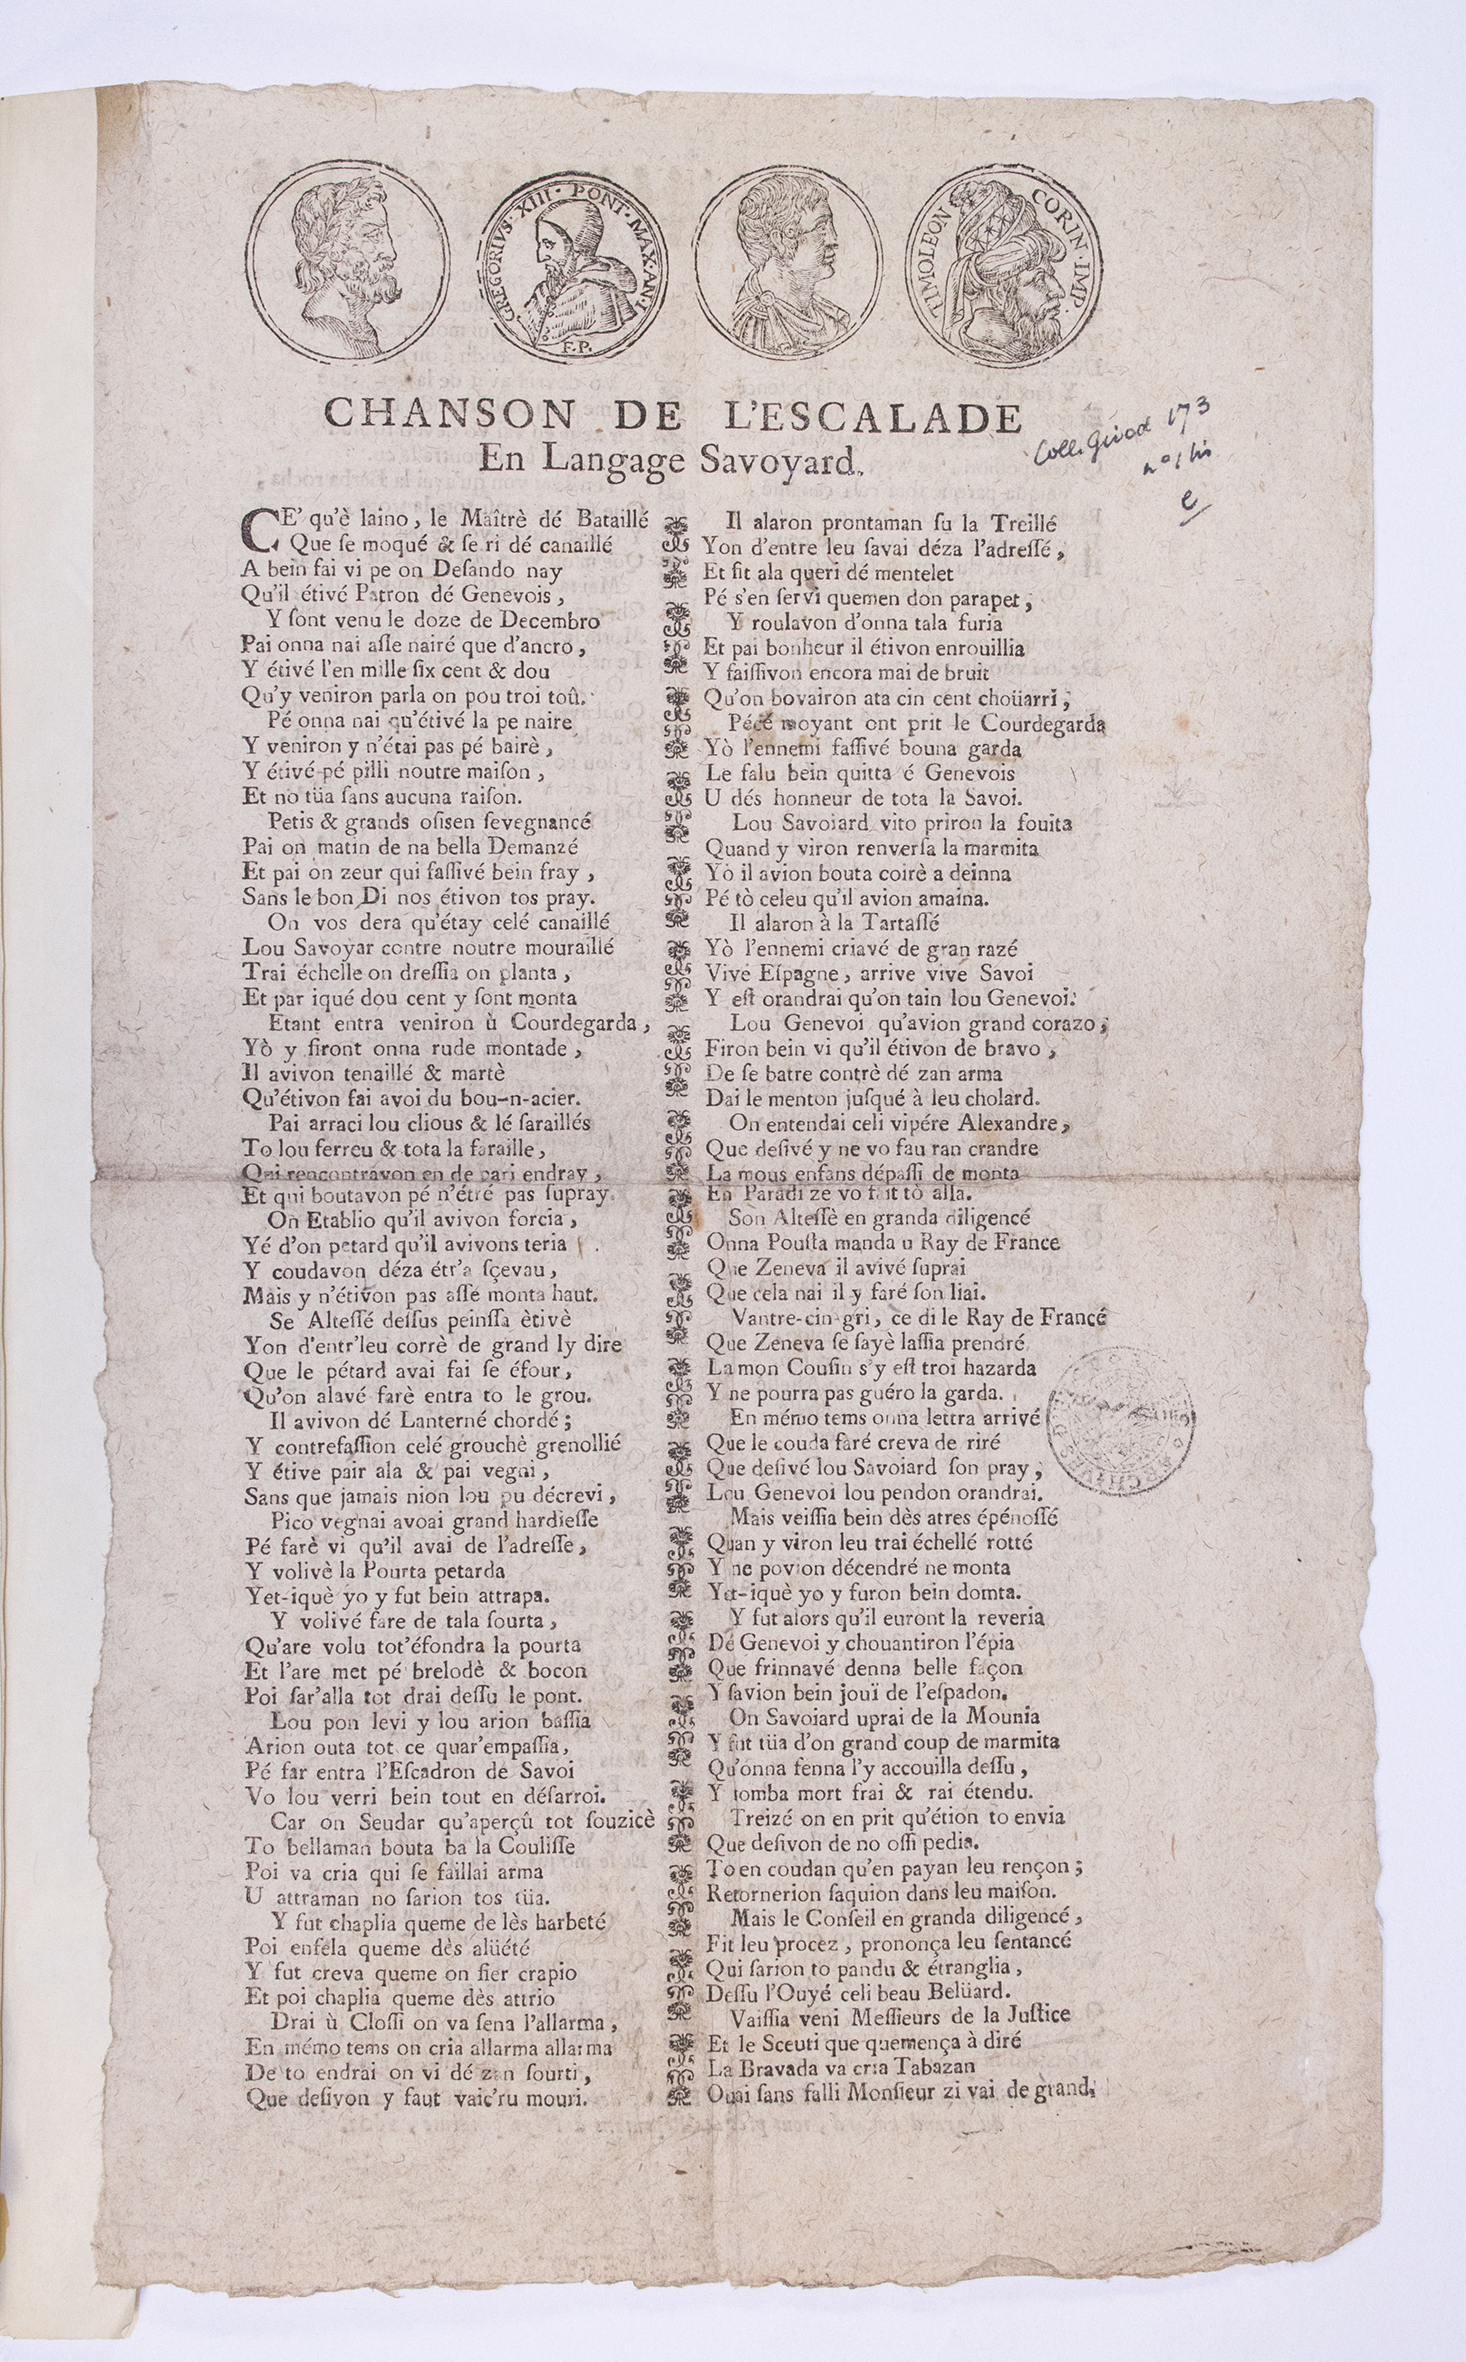 GREGORIVS·XIII·PONT·MAX·AN·I
F.P.
TIMOLEON CORIN·IMP·
CHANSON DE L'ESCALADE
En Langage Savoyard.
Coll. Girod 173
nº 1 bis
e
CE' qu'è laino, le Maîtrè dé Bataillé
Que ſe moqué & ſe ri dé canaillé
A bein fai vi pe on Deſando nay
Qu'il étivé Patron dé Genevois,
Y ſont venu le doze de Decembro
Pai onna nai aſſe nairé que d'ancro,
Y étivé l'en mille ſix cent & dou
Qu'y veniron parla on pou troi toû.
Pé onna nai qu'étivé la pe naire
Y veniron y n'étai pas pé bairè,
Y étivé pé pilli noutre maiſon,
Et no tüa ſans aucuna raiſon.
Petis & grands oſisen ſevegnancé
Pai on matin de na bella Demanzé
Et pai on zeur qui faſſivé bein fray,
Sans le bon Di nos étivon tos pray.
On vos dera qu'étay celé canaillé
Lou Savoyar contre noutre mouraillé
Trai échelle on dreſſia on planta,
Et par iqué dou cent y ſont monta
Etant entra veniron ù Courdegarda,
Yò y firont onna rude montade,
Il avivon tenaillé & martè
Qu'étivon fai avoi du bou-n-acier.
Pai arraci lou clious & lé ſaraillés
To lou ferreu & tota la faraille,
Qui rencontrávon en de pari endray,
Et qui boutavon pé n'étré pas ſupray.
On Etablio qu'il avivon forcia,
Yé d'on petard qu'il avivons teria
Y coudavon déza étr'a ſçevau,
Mais y n'étivon pas aſſé monta haut.
Se Alteſſé deſſus peinſſa ètivè
Yon d'entr'leu corrè de grand ly dire
Que le pétard avai fai ſe éfour,
Qu'on alavé farè entra to le grou.
Il avivon dé Lanterné chordé;
Y contrefaſſion celé grouchè grenollié
Y étive pair ala & pai vegni,
Sans que jamais nion lou pu décrevi,
Pico vegnai avoai grand hardieſſe
Pé farè vi qu'il avai de l'adreſſe,
Y volivè la Pourta petarda
Yet-iquè yo y fut bein attrapa.
Y volivé fare de tala ſourta,
Qu'are volu tot'éfondra la pourta
Et l'are met pé brelodè & bocon
Poi ſar'alla tot drai deſſu le pont.
Lou pon levi y lou arion baſſia
Arion outa tot ce quar'empaſſia,
Pé far entra l'Eſcadron de Savoi
Vo lou verri bein tout en déſarroi.
Car on Seudar qu'aperçû tot ſouzicè
To bellaman bouta ba la Couliſſe
Poi va cria qui ſe faillai arma
U attraman no ſarion tos tüa.
Y fut chaplia queme de lès harbeté
Poi enfela queme dès alüété
Y fut creva queme on fier crapio
Et poi chaplia queme dès attrio
Drai ù Cloſſi on va ſena l'allarma,
En mémo tems on cria allarma allarma
De to endrai on vi dé zan ſourti,
Que deſivon y faut vaic'ru mouri.
Il alaron prontaman ſu la Treillé
Yon d'entre leu ſavai déza l'adreſſé,
Et fit ala queri dé mentelet
Pé s'en ſervi quemen don parapet,
Y roulavon d'onna tala furia
Et pai bonheur il étivon enrouillia
Y faiſſivon encora mai de bruit
Qu'on bovairon ata cin cent choüarri;
Pécé moyant ont prit le Courdegarda
Yò l'ennemi faſſivé bouna garda
Le falu bein quitta é Genevois
U dés honneur de tota la Savoi.
Lou Savoiard vito priron la fouita
Quand y viron renverſa la marmita
Yò il avion bouta coirè a deinna
Pé tò celeu qu'il avion amaina.
Il alaron à la Tartaſſé
Yò l'ennemi criavé de gran razé
Vive Eſpagne, arrive vivé Savoi
Y eſt orandrai qu'on tain lou Genevoi.
Lou Genevoi qu'avion grand corazo,
Firon bein vi qu'il étivon de bravo,
De ſe batre contrè dé zan arma
Dai le menton juſqué à leu cholard.
On entendai celi vipére Alexandre,
Que deſivé y ne vo fau ran crandre
La mous enfans dépaſſi de monta
En Paradi ze vo fait tò alla.
Son Alteſſè en granda diligencé
Onna Pouſta manda u Ray de France
Que Zeneva il avivé ſuprai
Que cela nai il y faré ſon liai.
Vantre-cin-gri, ce di le Ray de Francé
Que Zeneva ſe ſayè laſſia prendré
La mon Couſin s'y eſt troi hazarda
Y ne pourra pas guéro la garda.
En mémo tems onna lettra arrivé
Que le couda faré creva de riré
Que deſivé lou Savoiard ſon pray,
Lou Genevoi lou pendon orandrai.
Mais veiſſia bein dès atres épénoſſé
Quan y viron leu trai échellé rotté
Y ne povion décendré ne monta
Yet-iquè yo y furon bein domta.
Y fut alors qu'il euront la reveria
Dé Genevoi y chouantiron l'épia
Que frinnavé denna belle façon
Y ſavion bein jouï de l'eſpadon.
On Savoiard uprai de la Mounia
Y fut tüa d'on grand coup de marmita
Qu'onna fenna l'y accouilla deſſu,
Y tomba mort frai & rai étendu.
Treizé on en prit qu'étion to envia
Que deſivon de no oſſi pedia.
To en coudan qu'en payan leu rençon;
Retornerion ſaquion dans leu maiſon.
Mais le Conſeil en granda diligencé,
Fit leu procez, prononça leu ſentancé
Qui ſarion to pandu & étranglia,
Deſſu l'Ouyé celi beau Belüard.
Vaiſſia veni Meſſieurs de la Juſtice
Et le Sceuti que quemença à diré
La Bravada va cria Tabazan
Ouai ſans falli Monſieur zi vai de grand.